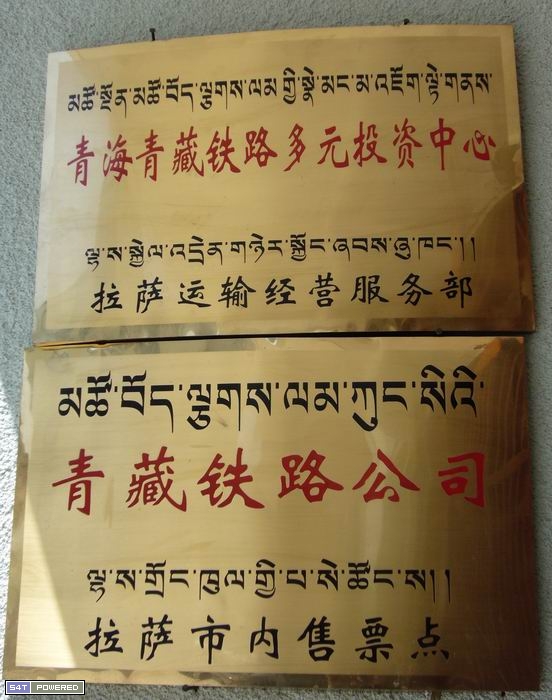 མཚོ་སྔོན་མཚོ་བོད་ལྕགས་ལམ་གྱི་སྣེ་མང་མ་འཇོག་ལྟེ་གནས་
青海青藏铁路多元投资中心
ལྷ་ས་སྐྱེལ་འདྲེན་གཉེར་སྐྱོང་ཞབས་ཞུ་ཁང་།།
拉萨运输经营服务部
མཚོ་བོད་ལྕགས་ལམ་ཀུང་སིའི་
青藏铁路公司
ལྷ་ས་གྲོང་ཁུལ་གྱི་པ་སེ་ཚོང་ས།།
拉萨市内售票点
S4T POWERED